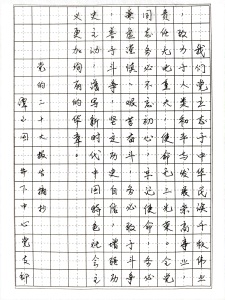 我们党立志于中华民族千秋伟业
，致力于人类和平与发展崇高事业，
责任无比重大，使命无上光荣。全党
同志务必不忘初心、牢记使命，务必
谦虚谨慎、艰苦奋斗，务必敢于斗争
、善于斗争，坚定历史自信，增强历
史主动，谱写新时代中国特色社会主
义更加绚丽的华章。
党的二十大报告摘抄
中心党支部